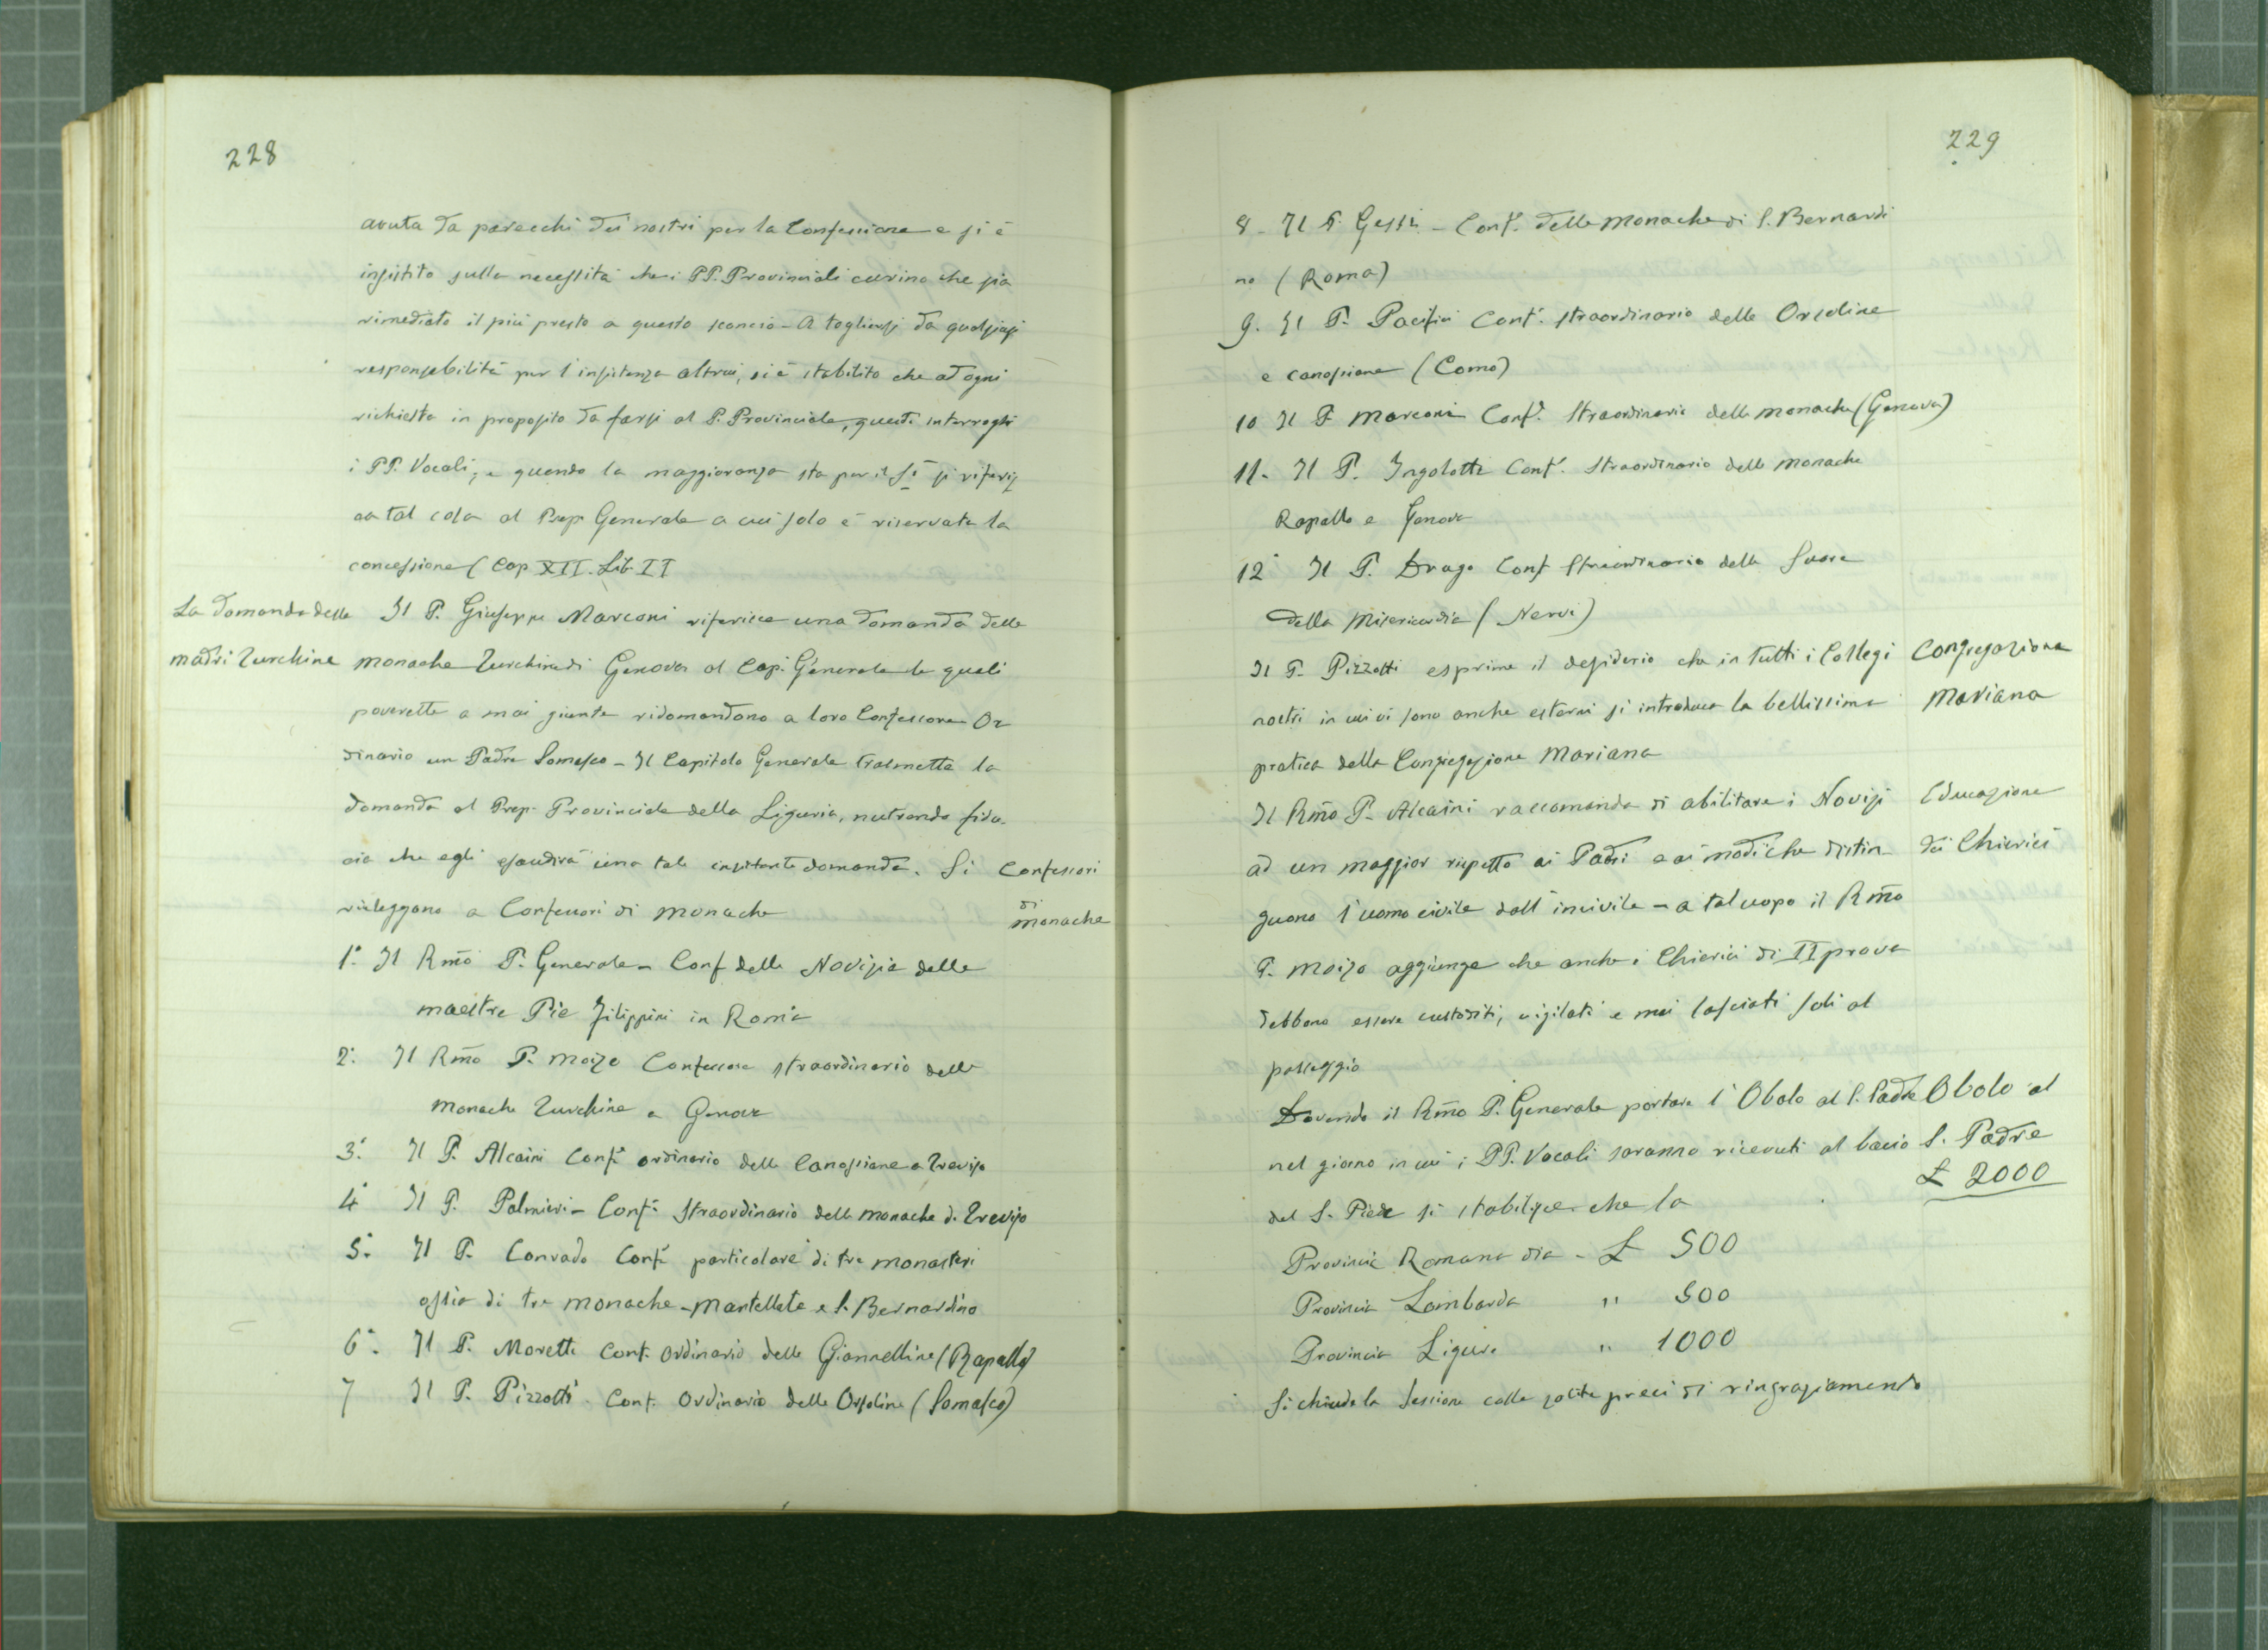 228
avuta da parecchi dei nostri per la Confessione e si è
insistito sulla necessità che i PP. Provinciali curino che sia
rimediato il più presto a questo sconcio - A togliersi da qualsiasi
responsabilità per l'insistenza altrui, si è stabilito che ad ogni
richiesta in proposito da farsi al P. Provinciale, questi interroghi
i PP. Vocali, e quando la maggioranza sta per il Sì si riferis
ca tal cosa al Prep. Generale a cui solo è riservata la
concessione (Cap XII. Lib II
La domanda delle
madri Turchine
Il P. Giuseppe Marconi riferisce una domanda delle
monache Turchine di Genova al Cap. Generale le quali
poverette a mai giunte ridomandano a loro Confessore Or
dinario un Padre Somasco - Il Capitolo Generale trasmette la
domanda al Prep. Provinciale della Liguria, nutrendo fidu-
cia che egli esaudirà una tale insistente domanda. Si
rieleggono a Confessori di monache
Confessori
di
monache
1.° Il Rmo P. Generale - Conf delle Novizie delle
maestre Pie Filippini in Roma
2.° Il Rmo P. Moizo Confessore straordinario delle
Monache Turchine a Genova
3.° Il P. Alcaini Conf.e ordinario delle Canossiane a Treviso
4.° Il P. Palmieri - Conf.e straordinario delle monache di Treviso
5.° Il P. Conrado Conf.e particolare di tre monasteri
ossia di tre monache - Mantellate e S. Bernardino
6.° Il P. Moretti Conf. ordinario delle Giannelline (Rapallo)
7 Il P. Pizzotti - Conf. Ordinario delle Orsoline (Somasca)
229
8 - Il P. Gessi - Conf. delle Monache di S. Bernardi
no (Roma)
9. Il P. Pacifici Conf. straordinario delle Orsoline
e canossiane (Como)
10 Il P. Marconi Conf.e Straordinario delle monache (Genova)
11. Il P. Ingolotti Conf. Straordinario delle monache
Rapallo e Genova
12° Il P. Drago Conf Straordinario delle Suore
della Misericordia (Nervi)
Il P. Pizzotti esprime il desiderio che in tutti i Collegi
nostri in cui vi sono anche esterni si introduca la bellissima
pratica della Congregazione Mariana
Congregazione
Mariana
Il Rmo P. Alcaini raccomanda di abilitare i Novizi
ad un maggior rispetto ai Padri e ai modi che distin-
guono l'uomo civile dall'incivile - a tal uopo il Rmo
P. Moizo aggiunge che anche i Chierici di II prova
debbono essere custoditi, vigilati e mai lasciati soli al
passeggio
Educazione
dei Chierici
Dovendo il Rmo P. Generale portare l'Obolo al S. Padre
nel giorno in cui i PP. Vocali saranno ricevuti al bacio
del S. Piede si stabilisce che la
Obolo al
S. Padre
£ 2000
Provincia Romana dia - £ 500
Provincia Lombarda " 500
Provincia Ligure " 1000
Si chiude la Sessione colle solite preci di ringraziamento